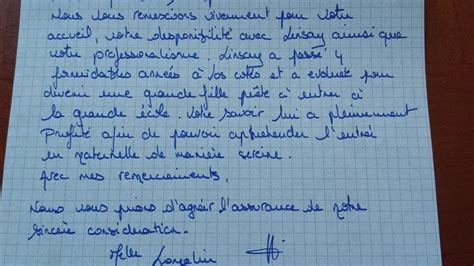 Nous vous remercions vivement pour votre
accueil, votre disponibilité avec Linsay ainsi que
votre professionalisme. Linsay a passé 4
formidables années à vos cotés et a evoluée pour
devenir une grande fille prête à entrer à
la grande école. Votre savoir lui a pleinement
Profité afin de pouvoir apprehender l'entrée
en maternelle de manière sereine.
Avec mes remerciements.
Nous vous prions d'agréer l'assurance de notre
sincère consideration.
Melle